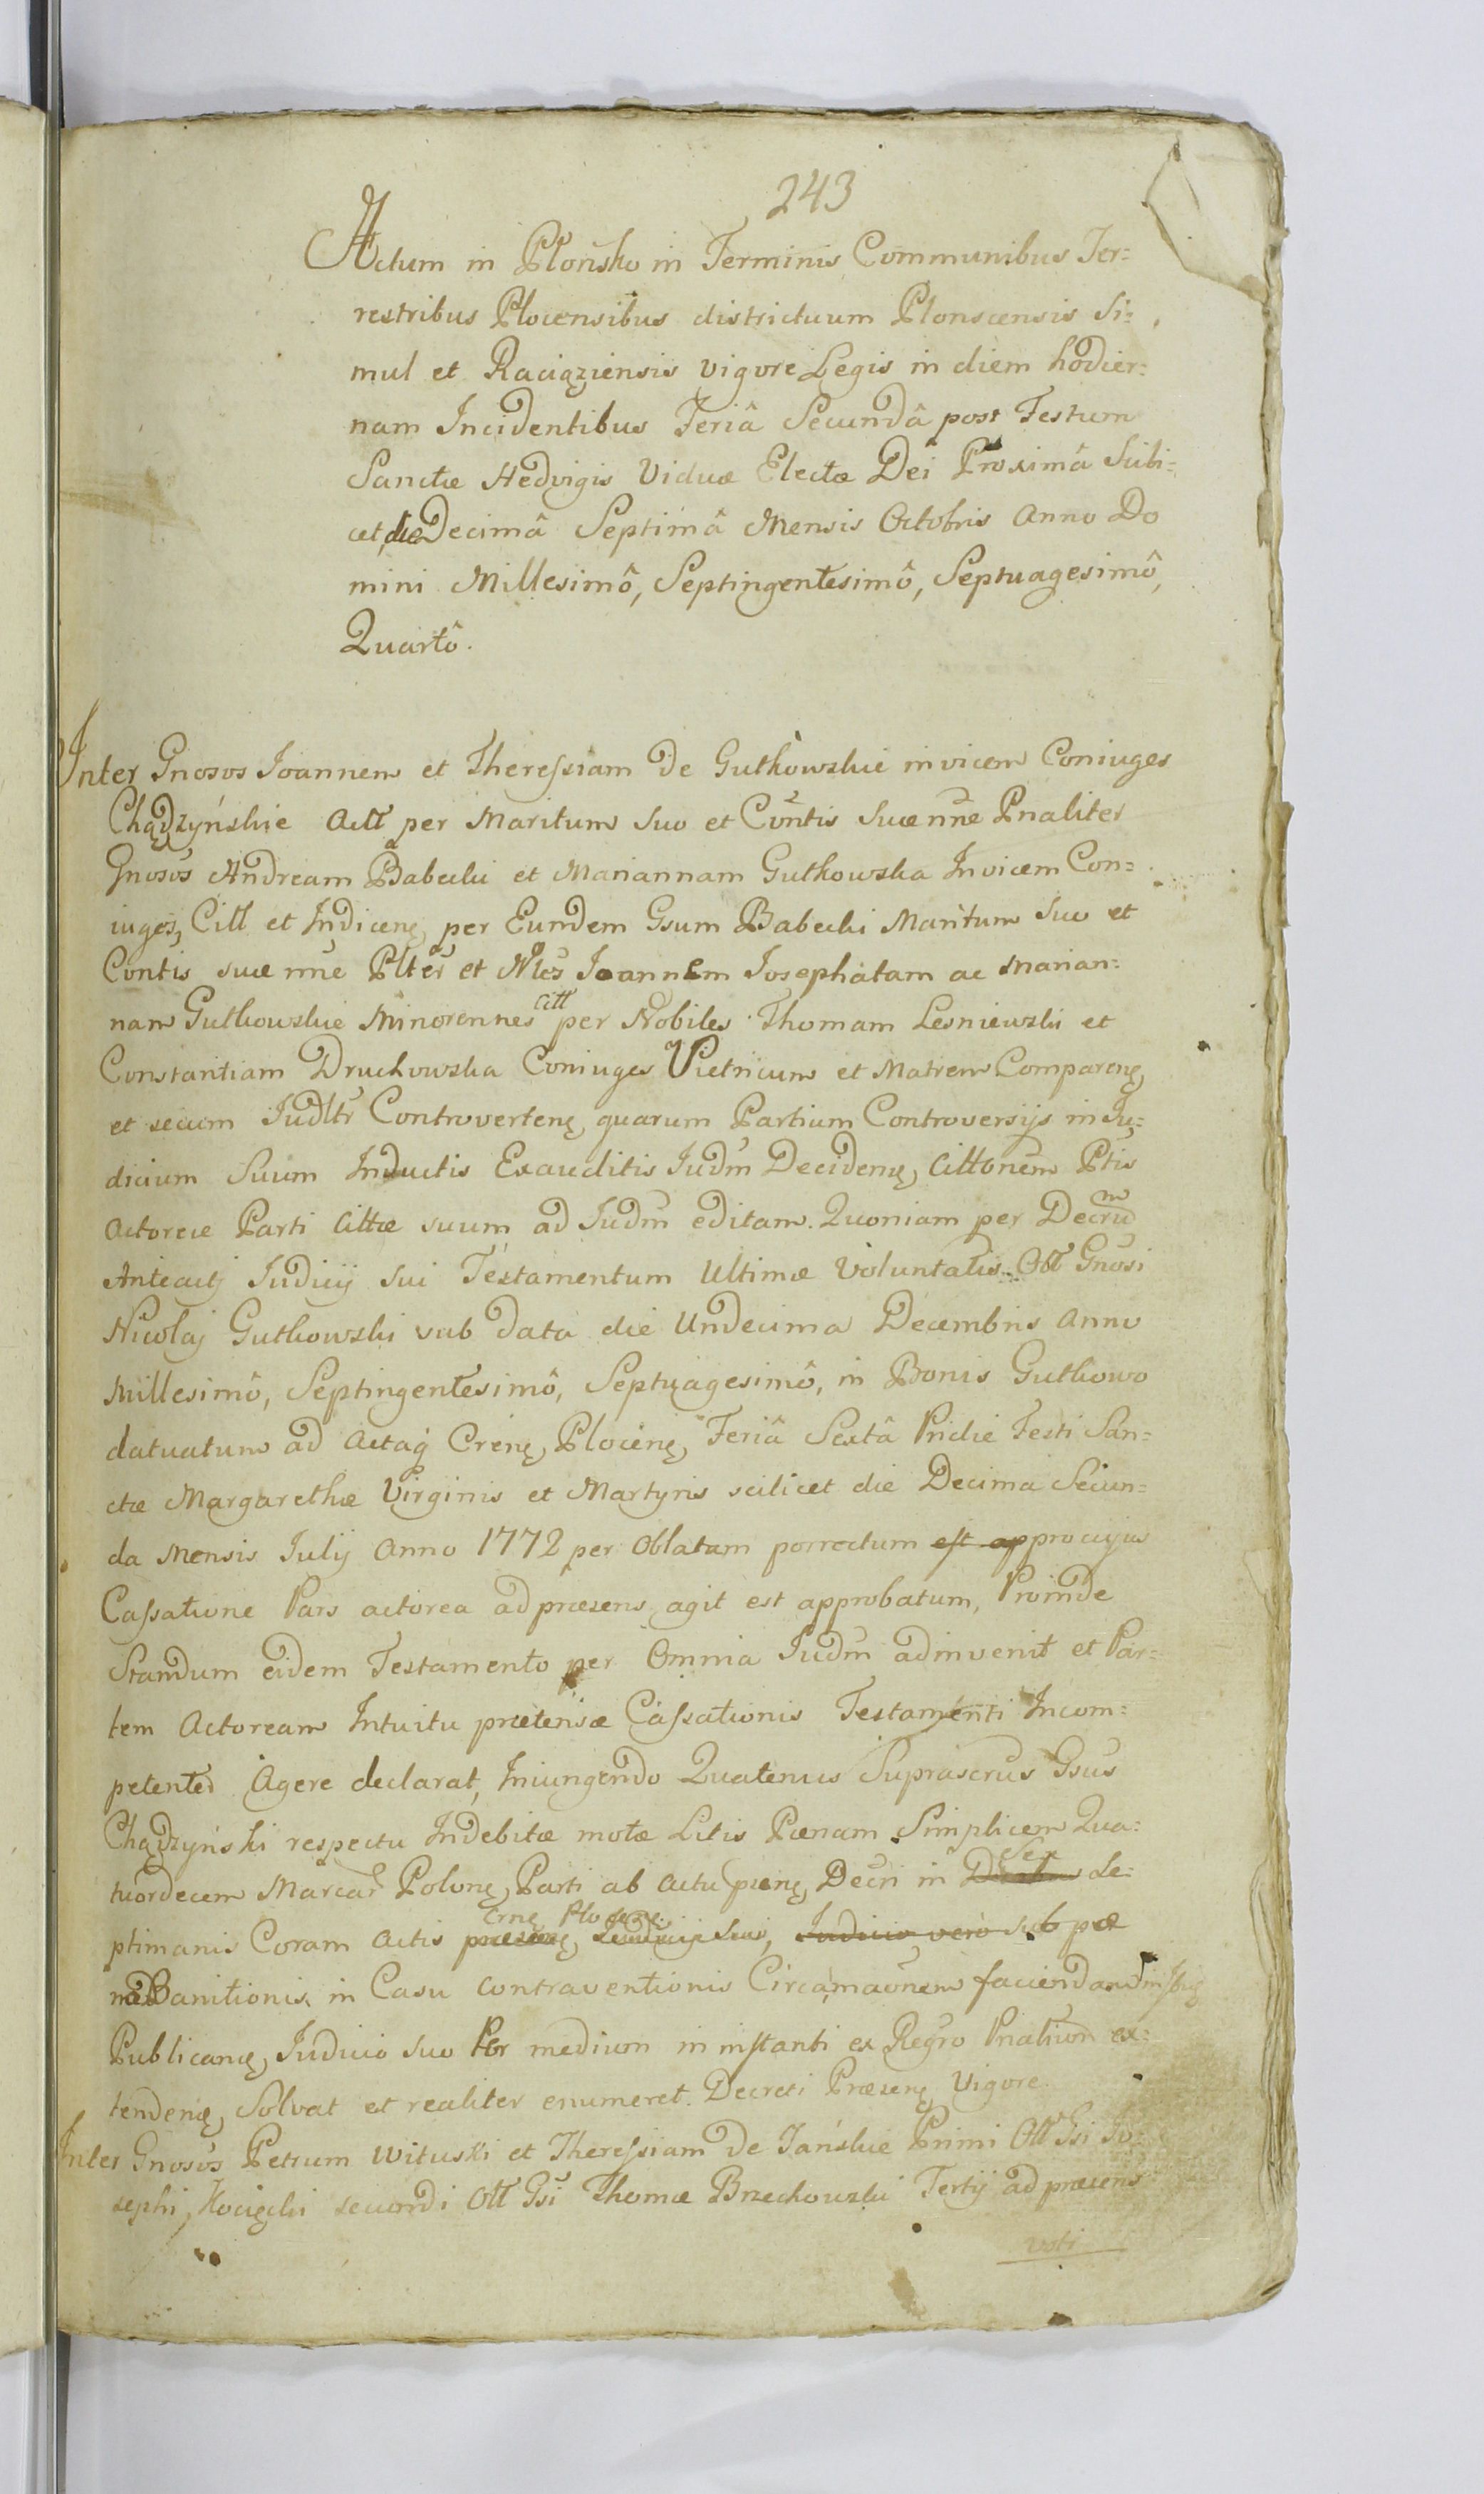 243
Actum in Płońsko in Terminis Communibus Ter=
restribus Plocensibus districtuum Plonscensis Si=
mul et Raciązjensis vigore Legis in diem hodier=
nam Incidentibus Feriâ Secundâ post Festum
Sanctæ Hedvigis Viduæ Electæ Dei Proximâ Scili=
cet, die Decimâ Septimâ Mensis Octobris Anno Do
mini Millesimô, Septingentesimô, Septuagesimô,
Quartô.
Inter Gnosos Joannem et Theressiam de Gutkowskie invicem Coniuges
Chądzyńskie Actt per Maritum suo et Contis suæ nne Pnaliter
Gnosos Andream Babecki et Mariannam Gutkowska Invicem Con=
iuges, Citt et Indicenę, per Eundem Gsum Babecki Maritum suo et
Contis suæ nne Plter et Nles Joannem Josephatam ac Marian=
nam Gutkowskie Minorennes Citt per Nobiles Thomam Lesniewski et
Constantiam Druchowska Coniuges Vietricum et Matrem Comparenę,
et secum Judltr Controvertenę, quarum Partium Controversijs in Ju=
dicium Suum Inductis Exauditis Judm Decidenę, Cittonem Ptis
Actoreæ Parti Cittæ suum ad Judm editam. Quoniam per Decrum
Anteactj Judicij sui Testamentum Ultimæ Voluntatis Ott Gnosi
Nicolaj Gutkowski sub data die Undecima Decembris Anno
Millesimô, Septingentesimô, Septuagesimô, in Bonis Gutkowo
datuatum ad Actaq Crenę, Plocenę, Feriâ Sextâ Pridie Festi San=
ctæ Margarethæ Virginis et Martyris scilicet die Decima Secun=
da Mensis Julij Anno 1772 per Oblatam porrectum est ap pro cujus
Cassatione Pars actorea ad præsens agit est approbatum, Proinde
Standum eidem Testamento per Omnia Judm adinvenit et Par=
tem Actoream Intuitu prætensæ Cassationis Testamenti Incom=
petenter Agere declarat, Iniungendo Quatenus Suprascrus Gsus
Chądzyński respectu Indebitæ motæ Litis Pænam Simplicem Qua=
tuordecem Marcar Polonę, Parti ab actu præsenę, Decri in Sex Se=
ptimanis Coram Actis Crnę Plocenę Judicij sui, Judicio vero sub pæ
na Banitionis in Casu contraventionis faciendam
Publicanę, Judicio suo Per medium in instanti ex Regro Pnatium ex=
tendenę, Solvat et realiter enumeret. Decreti Præsenę Vigore.
Inter Gnosos Petrum Wituski et Theressiam de Jańskie Primi Ott Gsi Jo=
sephi Kocięcki secundi Ott Gsi Thomæ Brzechowski Tertij ad præsens
voti